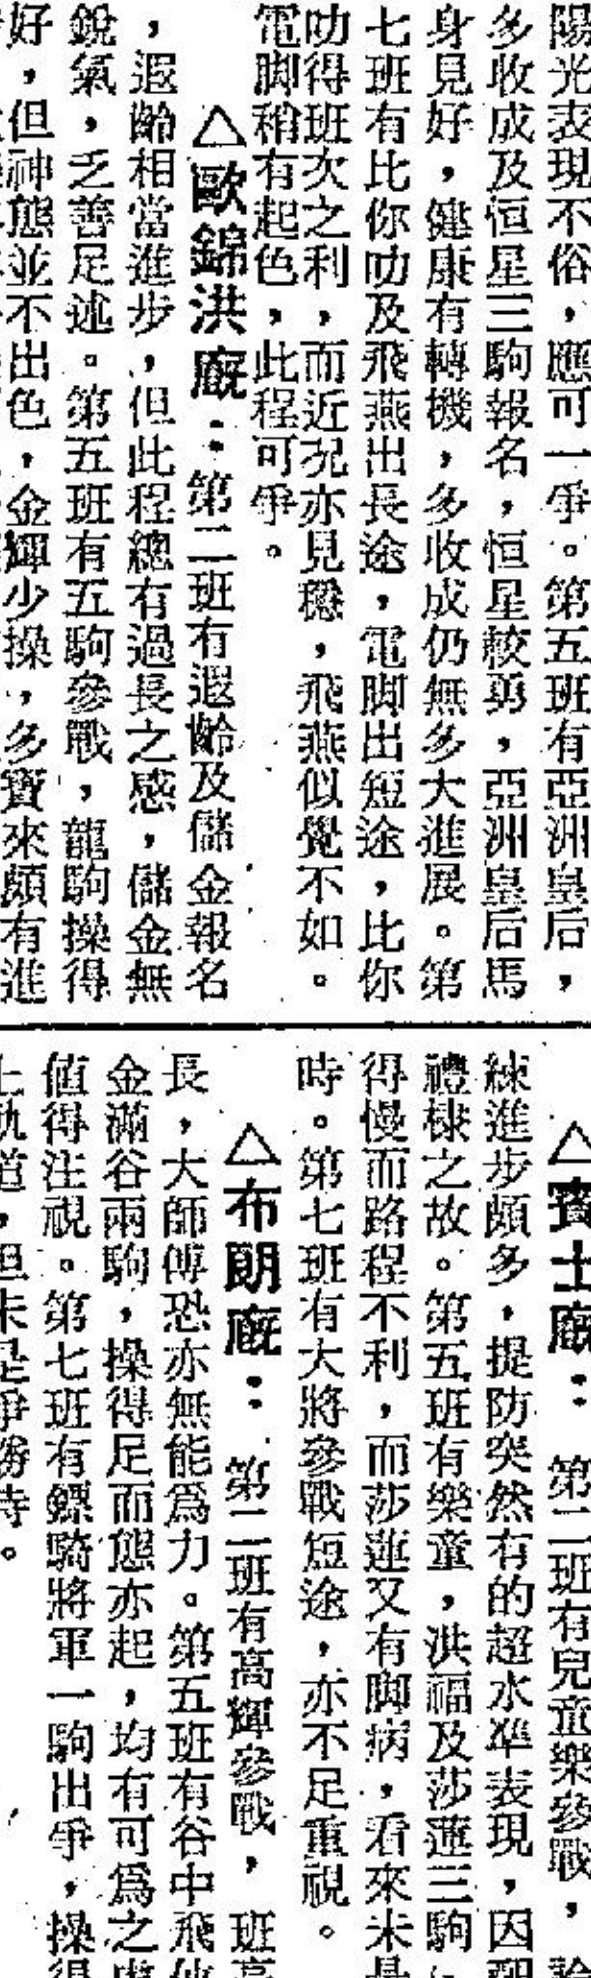 陽光表現不俗，應可一爭。第五班有亞洲皇后，
多收成及恒星三駒報名，恒星較勇，亞洲皇后馬
身見好，健康有轉機，多收成仍無多大進展。第
七班有比你叻及飛燕出長途，電脚出短途，比你
叻得班次之利，而近況亦見穩，飛燕似覺不如。
電脚稍有起色，此程可爭。
△歐錦洪廐：第二班有遐齡及儲金報名
，遐齡相當進步，但此程總有過長之感，儲金無
銳氣，乏善足述。第五班有五駒參戰，龍駒操得
好，但神態並不出色，金輝少操，多寶來頗有進
△賓士廐：第二班有兒童樂參戰，
練進步頗多，提防突然有的超水準表現，因
禮棣之故。第五班有樂童，洪福及莎蓮三駒
得慢而路程不利，而莎蓮又有脚病，看來未是
時。第七班有大將參戰短途，亦不足重視。
△布朗廐：第二班有高輝參戰，班高
長，大師傅恐亦無能爲力。第五班有谷中飛仙
金滿谷兩駒，操得足而態亦起，均有可爲之處
值得注視。第七班有鏢騎將軍一駒出爭，操得
上軌道，但未是爭勝時。